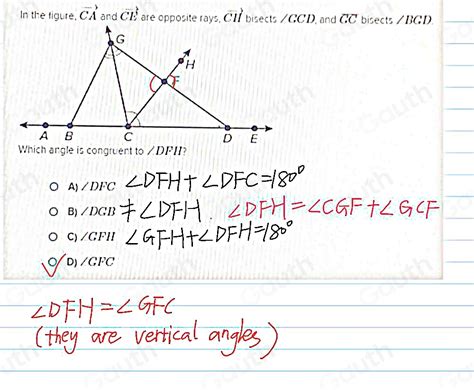 In the figure, CA and CE are opposite rays, CH bisects ∠GCD, and GC bisects ∠BGD.
G
H
F
A B C D E
Which angle is congruent to ∠DFH?
A) ∠DFC ∠DFH+∠DFC=180°
B) ∠DGB ≠∠DFH. ∠DFH=∠CGF+∠GCF
C) ∠GFH ∠GFH+∠DFH=180°
D) ∠GFC
∠DFH=∠GFC
(they are vertical angles)